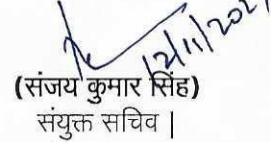 12/11/202
(संजय कुमार सिंह)
संयुक्त सचिव |